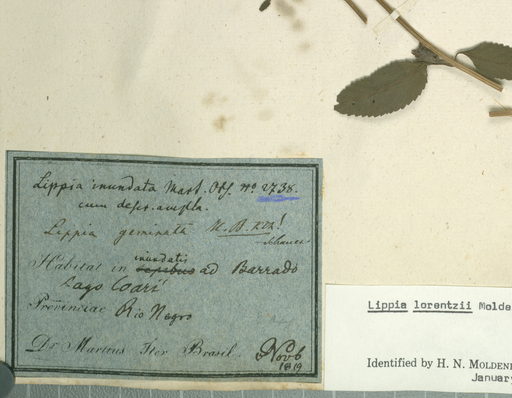 Lippia inundata Mart. Obs. no 2738.
cum descr. ampla.
Lippia geminata H. B. Kth!
Schauer
Habitat in inundatis sepibus ad Barrado
Lago Coari
Provinciae Rio Negro
Dr Martius Iter Brasil. Novb
1819
Lippia lorentzii Molde
Identified by H. N. MOLDEN
January